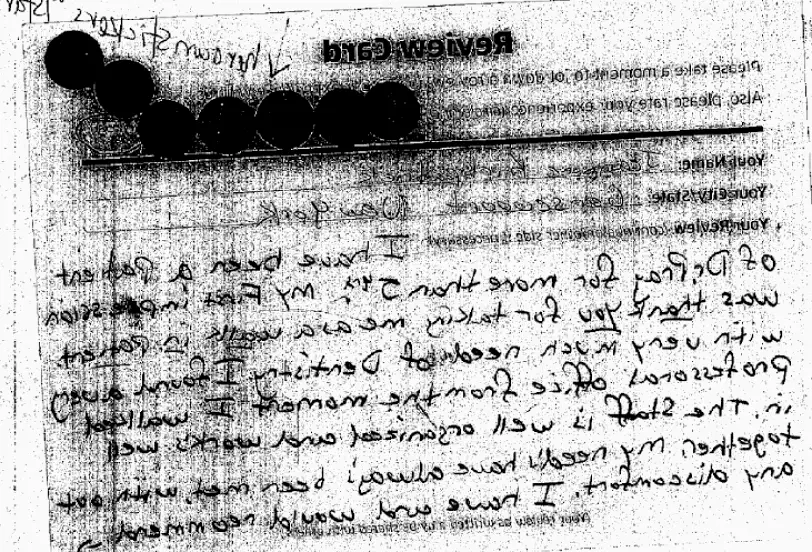 stickers
Review Card
Please take a moment to jot down a review
Also, please rate your experience
Your Name:
Your City/State: New York
Your Review (continue on other side if necessary)
I have been a Patient
of Dr. Pray for more than 5 yrs. My First impression
was thank you for taking me as a walk in Patient.
with very much needed Dentistry I found a very
professional office from the moment I walked
in. The Staff is well organized and works well
together. My needs have always been met, with out
any discomfort. I have and would recommend
Your review as written may be shared with